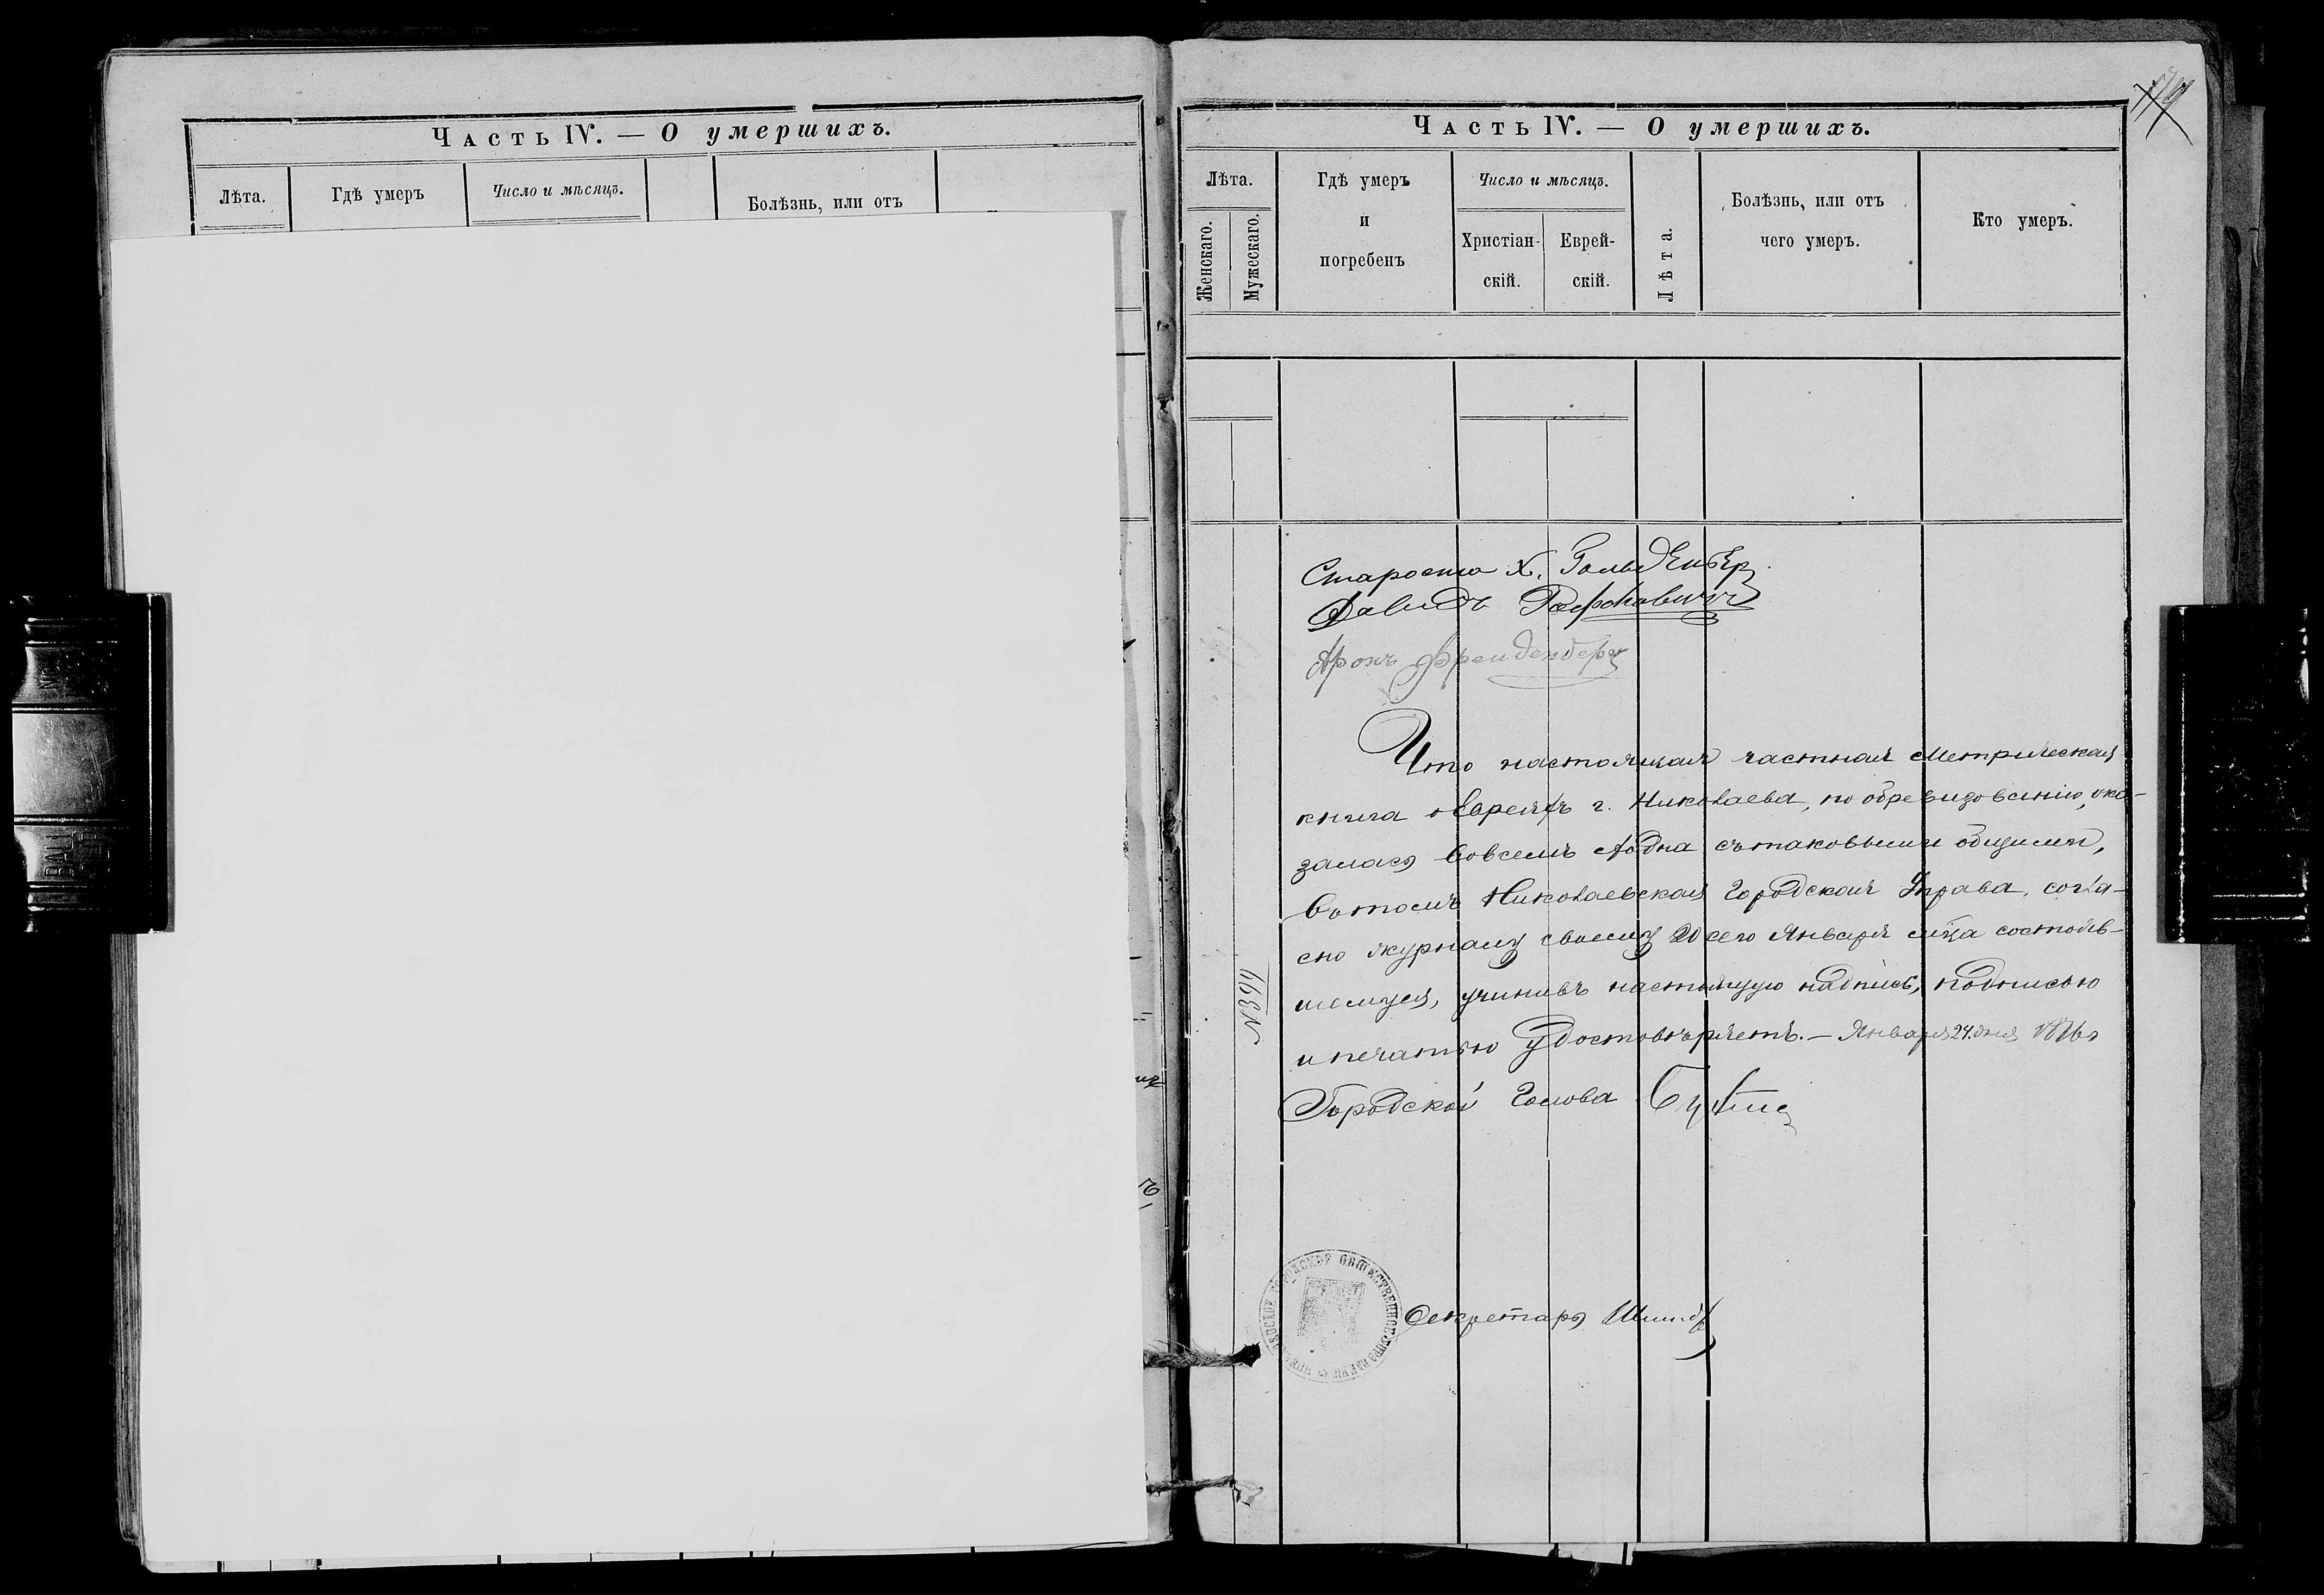 Часть IV. — О умершихъ.
Лѣта.
Гдѣ умеръ
Число и мѣсяцъ.
Болѣзнь, или отъ
179
Часть IV. — О умершихъ.
Лѣта.
Женскаго.
Мужескаго.
Гдѣ умеръ
и
погребенъ
Число и мѣсяцъ.
Христіан-
скій.
Еврей-
скій.
Лѣта.
Болѣзнь, или отъ
чего умеръ.
Кто умеръ.
Староста Х. Гольденбер
Давидъ Рафаловичъ
Аронъ Фрейденберг
Что настоящая частная Метрическая
книга о Евреяхъ г. Николаева, по обревизованію, ока-
залась вовсемъ сходна съ таковыми общими,
въ томъ Николаевская Городская Управа, согла-
сно журналу своему 20 сего Января м-ца состояв-
шемуся, учинивъ настоящую надпись, подписью
и печатью удостовѣряетъ. — Января 24 дня 1876 г
Городской Голова
Секретарь
НИКОЛАЕВСКОЕ ГОРОДСКОЕ ОБЩЕСТВЕННОЕ УПРАВЛЕНІЕ